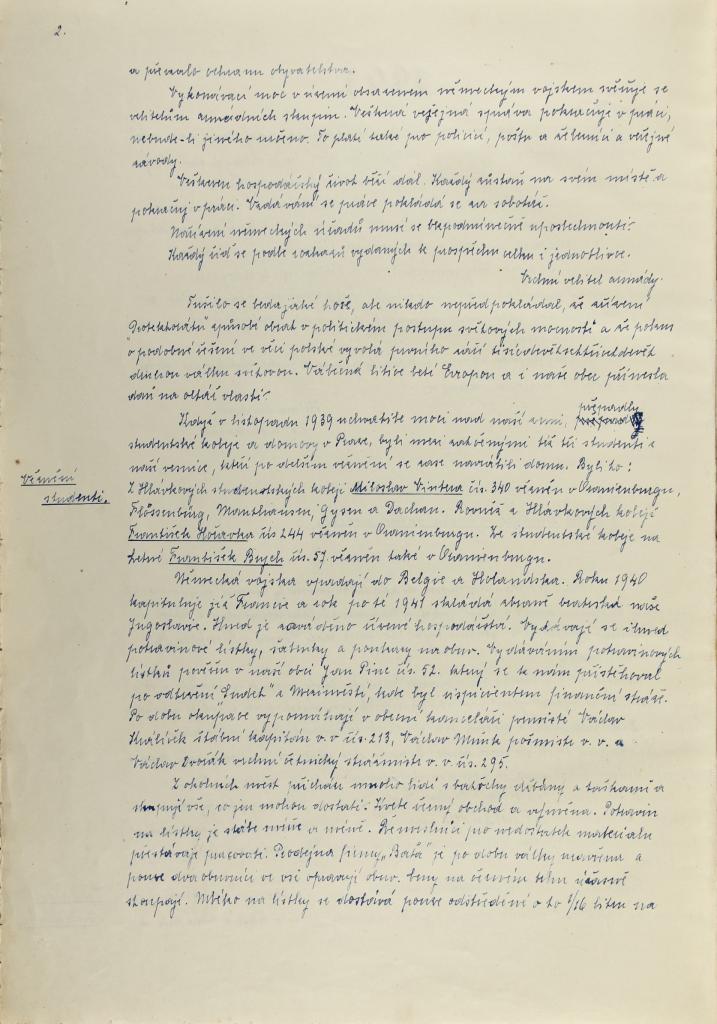 2.
a převzalo ochranu obyvatelstva.
Vykonávací moc v území obsazeném německým vojskem svěřuje se
velitelům armádních skupin. Veškerá veřejná správa pokračuje v práci,
nebude-li jiného určeno. To platí také pro policii, poštu a a veřejné
závody.
Veškeren hospodářský život běží dál. Každý zůstaň na svém místě a
pokračuj v práci. Vzdávání se práce pokládá se za sabotáž.
Nařízení německých úřadů musí se bezpodmínečně uposlechnouti.
Každý řiď se podle rozkazů vydaných k prospěchu celku i jednotlivce.
Vrchní velitel armády.
Tušilo se leda jaké hoře, ale nikdo nepředpokládal, že zřízení
"Protektorátu" způsobí obrat v politickém postupu světových mocností a že pokus
o podobné řešení ve věci polské vyvolá prvního září tisícdevětsettřicetdevět
druhou válku světovou. Válečná litice letí Evropou a i naše obec přinesla
daň na oltář vlasti.
Když v listopadu 1939 uchvatitelé moci nad naší zemí, přepadly
studentské koleje a domovy v Praze, byli mezi zatčenými též tři studenti z
naší vesnice, kteří po delším věznění se zase navrátili domů. Byli to:
Věznění
studenti.
Z Hlávkových studentských kolejí Miloslav Vintera čís. 340 vězněn v Oranienburgu,
Flossenbürg, Mauthausen, Gusen a Dachau. Rovněž z Hlávkových kolejí
František Hořavka čís 244 vězněn v Oranienburgu. Ze studentské koleje na
Letné František Brych čís. 57 vězněn také v Oranienburgu.
Německá vojska vpadají do Belgie a Holandska. Roku 1940
kapituluje již Francie a rok po té 1941 skládá zbraně bratrská naše
Jugoslavie. Hned je zaváděno řízené hospodářství. Vydávají se ihned
potravinové lístky, šatenky a poukazy na obuv. Vydáváním potravinových
lístků pověřen v naší obci Jan Pinc čís. 52. který se k nám přistěhoval
po odtržení "Sudet" z Meziměstí, kde byl inspicientem finanční stráže.
Po dobu okupace vypomáhají v obecní kanceláři pensisté Václav
Králíček štábní kapitán v. v. čís. 213, Václav Munk v. v. a
Václav Dvořák vrchní četnický strážmistr v. v. čís. 295.
Z okolních měst přichází mnoho lidí s batochy džbány a taškami a
skupují vše, co jen mohou dostati. Kvete černý obchod a výměna. Potravin
na lístky je stále méně a méně. Řemeslníci pro nedostatek materiálu
přestávají pracovati. Prodejna firmy "Baťa" je po dobu války uzavřena a
pouze dva obuvníci ve vsi opravují obuv. Ceny na černém trhu úžasně
stoupají. Mléko na lístky se dostává pouze odstředěné a to 1/16 litru na